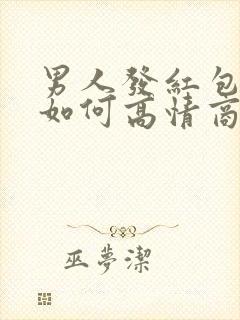 男人發紅包
如何高情商
巫夢潔